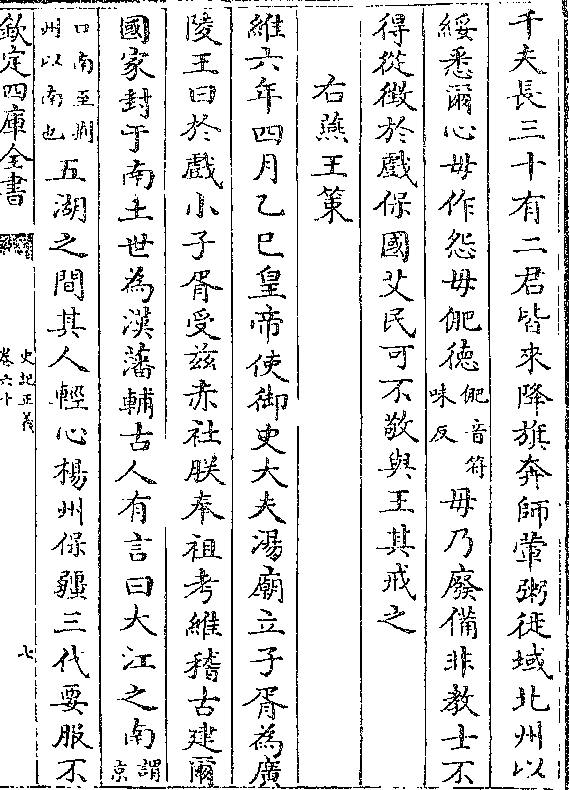 千夫長三十有二君皆來降旗奔師葷粥徙域北州以
綏悉爾心毋作怨毋俷德俷音符味反毋乃廢備非教士不
得從徵於戲保國艾民可不敬與王其戒之
右燕王策
維六年四月乙巳皇帝使御史大夫湯廟立子胥為廣
陵王曰於戲小子胥受茲赤社朕奉祖考維稽古建爾
國家封于南土世為漢藩輔古人有言曰大江之南謂京
口南至荆州以南也五湖之間其人輕心楊州保疆三代要服不
欽定四庫全書
史記正義
卷六十
七